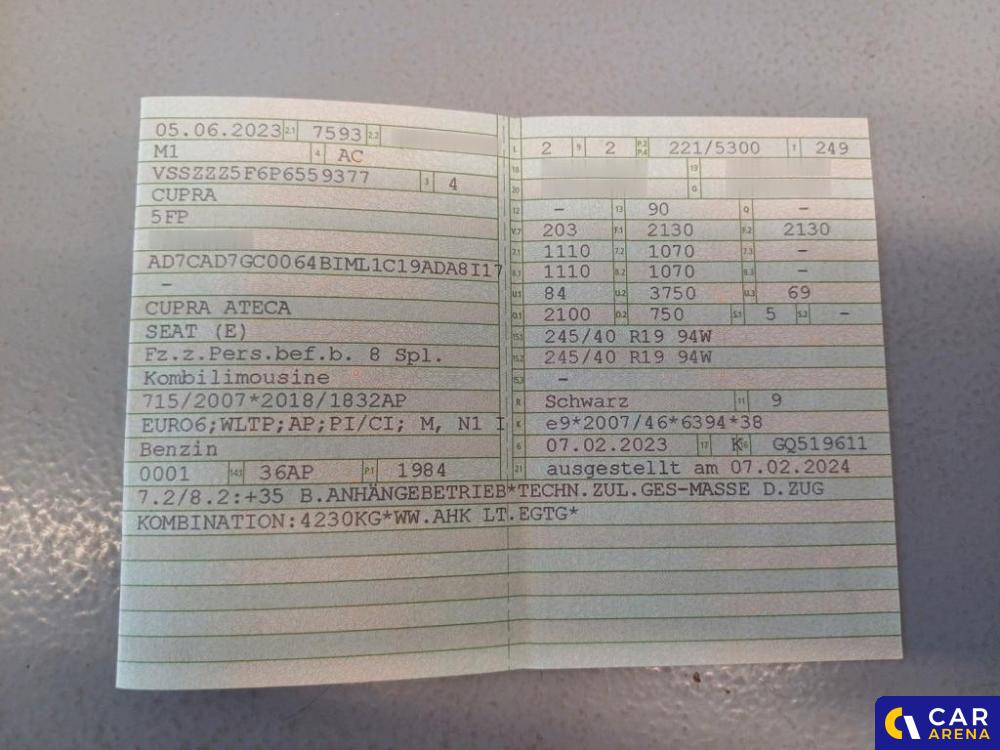 05.06.2023 2.1 7593 2.2
M1 4 AC
VSSZZZ5F6P6559377 3 4
CUPRA
5FP
AD7CAD7GC0064BIML1C19ADA8I17
–
CUPRA ATECA
SEAT (E)
Fz.z.Pers.bef.b. 8 Spl.
Kombilimousine
715/2007*2018/1832AP
EURO6;WLTP;AP;PI/CI; M, N1 I
Benzin
0001 14.1 36AP P.1 1984
L 2 9 2 P.2 P.4 221/5300 T 249
18 19
20 G
12 – 13 90 Q –
V.7 203 F.1 2130 F.2 2130
7.1 1110 7.2 1070 7.3 –
8.1 1110 8.2 1070 8.3 –
U.1 84 U.2 3750 U.3 69
O.1 2100 O.2 750 S.1 5 S.2 –
15.1 245/40 R19 94W
15.2 245/40 R19 94W
15.3 –
R Schwarz 11 9
K e9*2007/46*6394*38
6 07.02.2023 17 K 16 GQ519611
21 ausgestellt am 07.02.2024
7.2/8.2:+35 B.ANHÄNGEBETRIEB*TECHN.ZUL.GES-MASSE D.ZUG
KOMBINATION:4230KG*WW.AHK LT.EGTG*
CAR
ARENA